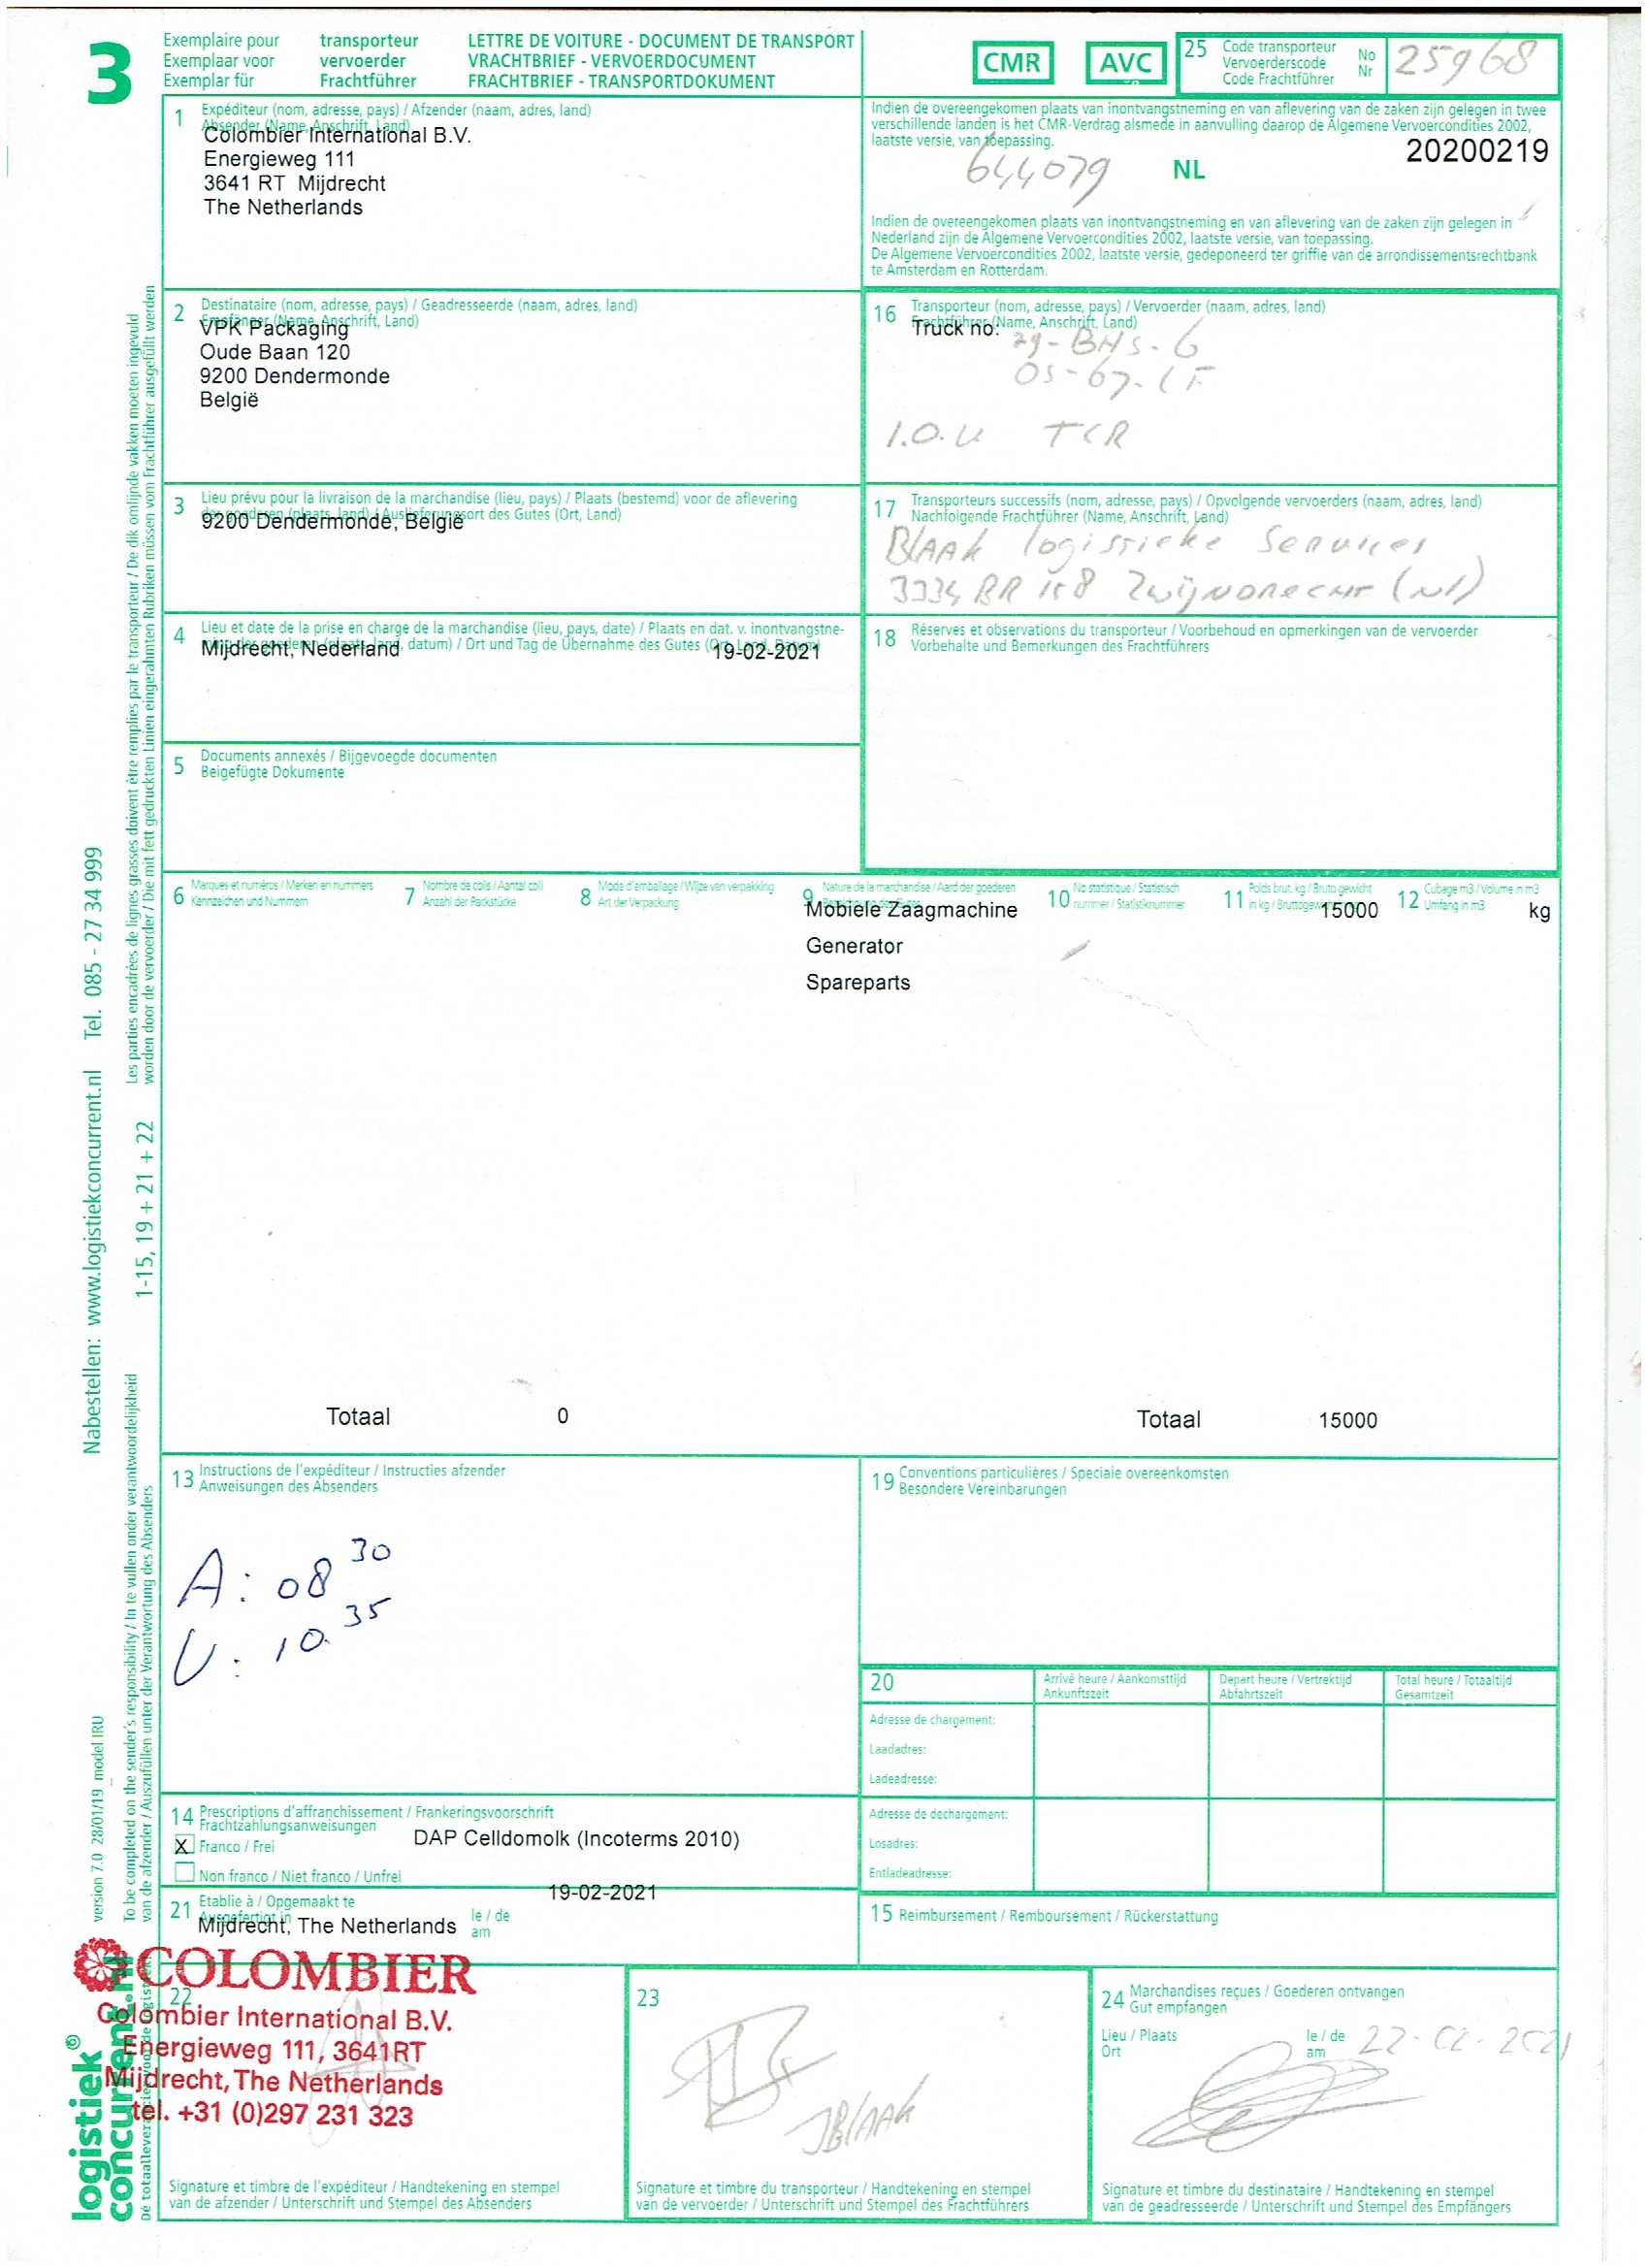 3
Exemplaire pour transporteur
Exemplaar voor vervoerder
Exemplar für Frachtführer
LETTRE DE VOITURE - DOCUMENT DE TRANSPORT
VRACHTBRIEF - VERVOERDOCUMENT
FRACHTBRIEF - TRANSPORTDOKUMENT
CMR
AVC
25 Code transporteur
Vervoerderscode
Code Frachtführer
No
Nr
25968
1 Expéditeur (nom, adresse, pays) / Afzender (naam, adres, land)
Absender (Name, Anschrift, Land)
Colombier International B.V.
Energieweg 111
3641 RT Mijdrecht
The Netherlands
Indien de overeengekomen plaats van inontvangstneming en van aflevering van de zaken zijn gelegen in twee
verschillende landen is het CMR-Verdrag alsmede in aanvulling daarop de Algemene Vervoercondities 2002,
laatste versie, van toepassing.
20200219
644079
NL
Indien de overeengekomen plaats van inontvangstneming en van aflevering van de zaken zijn gelegen in
Nederland zijn de Algemene Vervoercondities 2002, laatste versie, van toepassing.
De Algemene Vervoercondities 2002, laatste versie, gedeponeerd ter griffie van de arrondissementsrechtbank
te Amsterdam en Rotterdam.
2 Destinataire (nom, adresse, pays) / Geadresseerde (naam, adres, land)
Empfänger (Name, Anschrift, Land)
VPK Packaging
Oude Baan 120
9200 Dendermonde
België
16 Transporteur (nom, adresse, pays) / Vervoerder (naam, adres, land)
Frachtführer (Name, Anschrift, Land)
Truck no: 29-BHS-6
OS-67-LF
I.O.U TCR
3 Lieu prévu pour la livraison de la marchandise (lieu, pays) / Plaats (bestemd) voor de aflevering
der goederen (plaats, land) / Auslieferungsort des Gutes (Ort, Land)
9200 Dendermonde, België
17 Transporteurs successifs (nom, adresse, pays) / Opvolgende vervoerders (naam, adres, land)
Nachfolgende Frachtführer (Name, Anschrift, Land)
BlAAK logistieke Services
3334 BR 158 Zwijndrecht (Nl)
4 Lieu et date de la prise en charge de la marchandise (lieu, pays, date) / Plaats en dat. v. inontvangstne-
ming der goederen (plaats, land, datum) / Ort und Tag de Übernahme des Gutes (Ort, Land, Datum)
Mijdrecht, Nederland 19-02-2021
18 Réserves et observations du transporteur / Voorbehoud en opmerkingen van de vervoerder
Vorbehalte und Bemerkungen des Frachtführers
5 Documents annexés / Bijgevoegde documenten
Beigefügte Dokumente
6 Marques et numéros / Merken en nummers
Kennzeichen und Nummern
7 Nombre de colis / Aantal colli
Anzahl der Packstücke
8 Mode d'emballage / Wijze van verpakking
Art der Verpackung
9 Nature de la marchandise / Aard der goederen
10 No statistique / Statistisch
nummer / Statistiknummer
11 Poids brut. kg / Bruto gewicht
in kg / Bruttogewicht
12 Cubage m3 / Volume in m3
Umfang in m3
Mobiele Zaagmachine 15000 kg
Generator
Spareparts
Totaal 0 Totaal 15000
13 Instructions de l'expéditeur / Instructies afzender
Anweisungen des Absenders
A: 08 30
U: 10. 35
19 Conventions particulières / Speciale overeenkomsten
Besondere Vereinbarungen
20
Arrivé heure / Aankomsttijd
Ankunftszeit
Depart heure / Vertrektijd
Abfahrtszeit
Total heure / Totaaltijd
Gesamtzeit
Adresse de chargement:
Laadadres:
Ladeadresse:
Adresse de dechargement:
Losadres:
Entladeadresse:
14 Prescriptions d'affranchissement / Frankeringsvoorschrift
Frachtzahlungsanweisungen
X Franco / Frei
DAP Celldomolk (Incoterms 2010)
Non franco / Niet franco / Unfrei
21 Etablie à / Opgemaakt te
Ausgefertigt in
Mijdrecht, The Netherlands
le / de
am
19-02-2021
15 Reimbursement / Remboursement / Rückerstattung
22
COLOMBIER
Colombier International B.V.
Energieweg 111, 3641RT
Mijdrecht, The Netherlands
tel. +31 (0)297 231 323
Signature et timbre de l'expéditeur / Handtekening en stempel
van de afzender / Unterschrift und Stempel des Absenders
23
JBlAAK
Signature et timbre du transporteur / Handtekening en stempel
van de vervoerder / Unterschrift und Stempel des Frachtführers
24 Marchandises reçues / Goederen ontvangen
Gut empfangen
Lieu / Plaats
Ort
le / de
am
22-02-2021
Signature et timbre du destinataire / Handtekening en stempel
van de geadresseerde / Unterschrift und Stempel des Empfängers
Les parties encadrées de lignes grasses doivent être remplies par le transporteur / De dik omlijnde vakken moeten ingevuld
worden door de vervoerder / Die mit fett gedruckten Linien eingerahmten Rubriken müssen vom Frachtführer ausgefüllt werden
1-15, 19 + 21 + 22
To be completed on the sender's responsibility / In te vullen onder verantwoordelijkheid
van de afzender / Auszufüllen unter der Verantwortung des Absenders
Nabestellen: www.logistiekconcurrent.nl Tel. 085 - 27 34 999
version 7.0 28/01/19 model IRU
logistiek
concurrent.nl